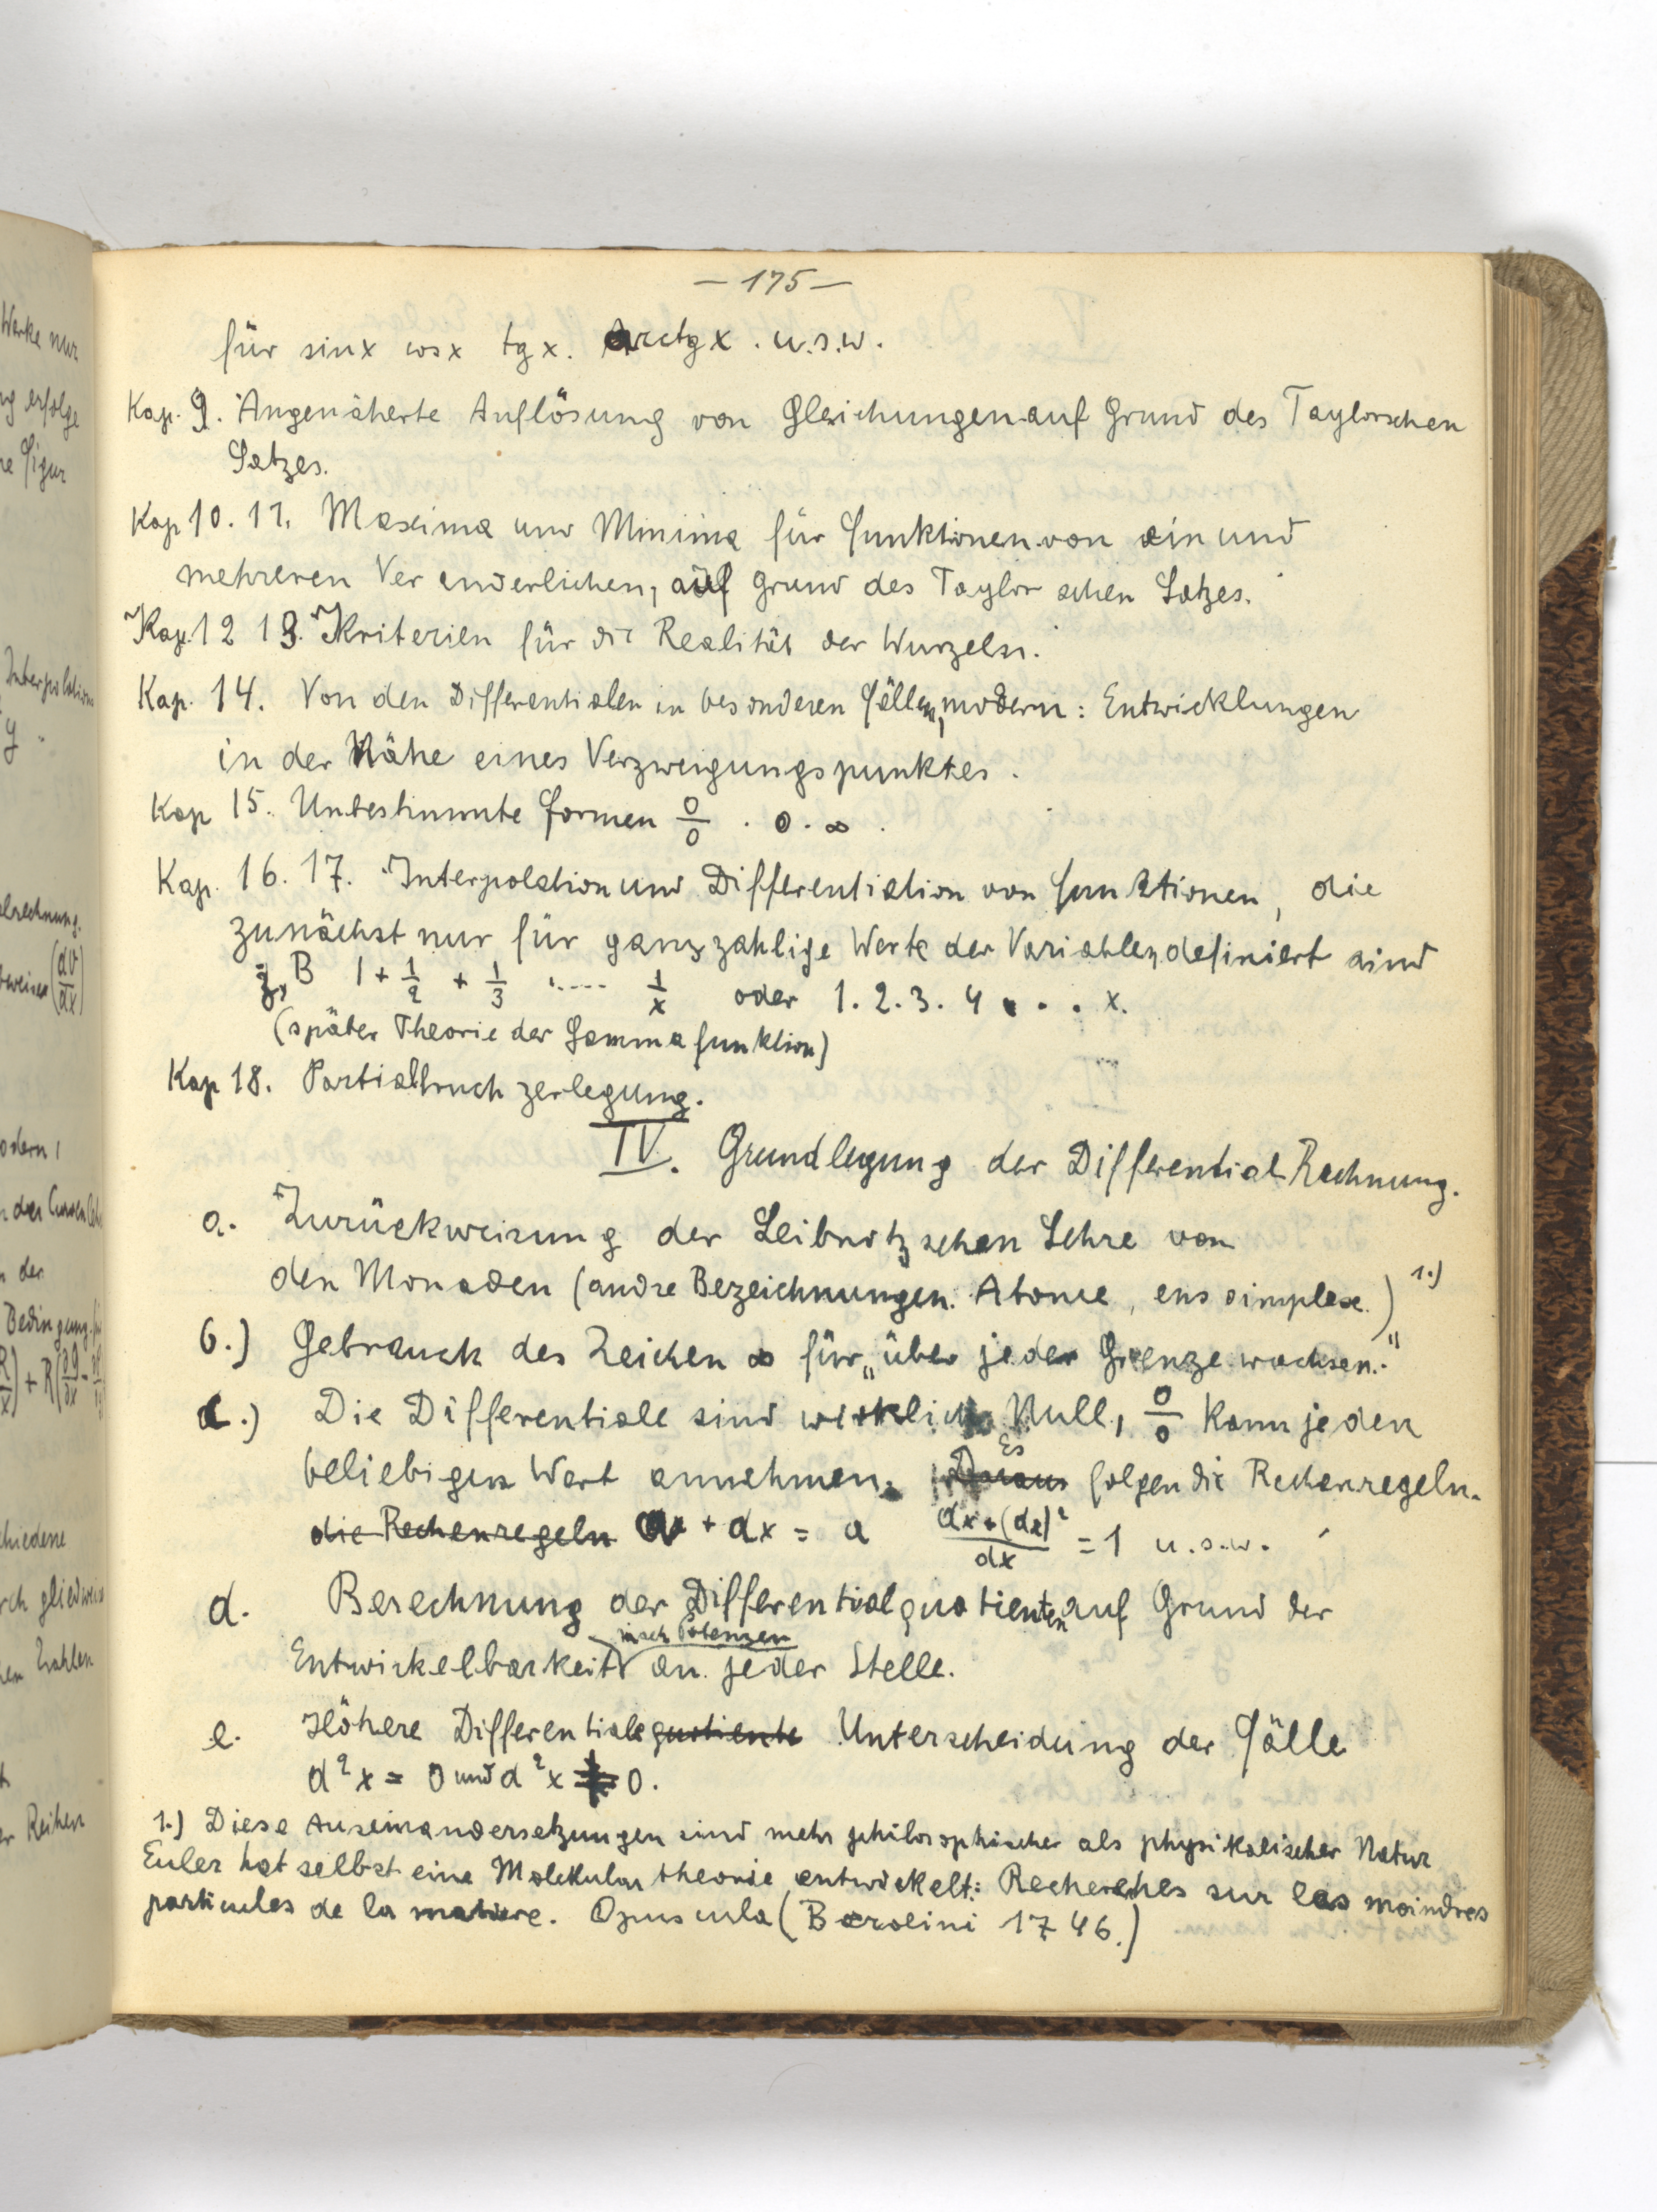 — 175 —
für sinx cosx tgx. Arctgx. u.s.w.
Kap. 9. Angenäherte Auflösung von Gleichungen auf Grund des Taylorschen
Satzes.
Kap 10. 11. Maxima und Minima für Funktionen von ein und
mehreren Veränderlichen, auf Grund des Taylorschen Satzes.
Kap. 12 13. Kriterien für die Realität der Wurzeln.
Kap. 14. Von den Differentialen in besonderen Fällen, modern: Entwicklungen
in der Nähe eines Verzweigungspunktes.
Kap 15. Unbestimmte Formen 0/0 . 0.∞.
Kap. 16. 17. Interpolation und Differentiation von Funktionen, die
zunächst nur für ganzzahlige Werte der Variablen definiert sind
z.B 1 + 1/2 + 1/3 ..... 1/x oder 1. 2. 3. 4 . . . x.
(später Theorie der Gammafunktion)
Kap 18. Partialbruchzerlegung.
IV. Grundlegung der Differential Rechnung.
a. Zurückweisung der Leibnitzschen Lehre von
den Monaden (andre Bezeichnungen. Atome, ens simplex.) 1.)
b.) Gebrauch des Zeichen ∞ für „über jeder Grenze wachsen."
c.) Die Differentiale sind wirklich Null, 0/0 kann jeden
beliebigen Wert annehmen. Daraus Es folgen die Rechenregeln.
die Rechenregeln a + dx = a (dx+(dx)²)/dx = 1 u.s.w.
d. Berechnung der Differentialquotienten auf Grund der
Entwickelbarkeit nach Potenzen an jeder Stelle.
e. Höhere Differentialequotiente Unterscheidung der Fälle
d²x = 0 und d²x ≠ 0.
1.) Diese Auseinandersetzungen sind mehr philosophischer als physikalischer Natur
Euler hat selbst eine Molekulartheorie entwickelt: Recherches sur les moindres
particules de la matiere. Opuscula (Berolini 1746.)